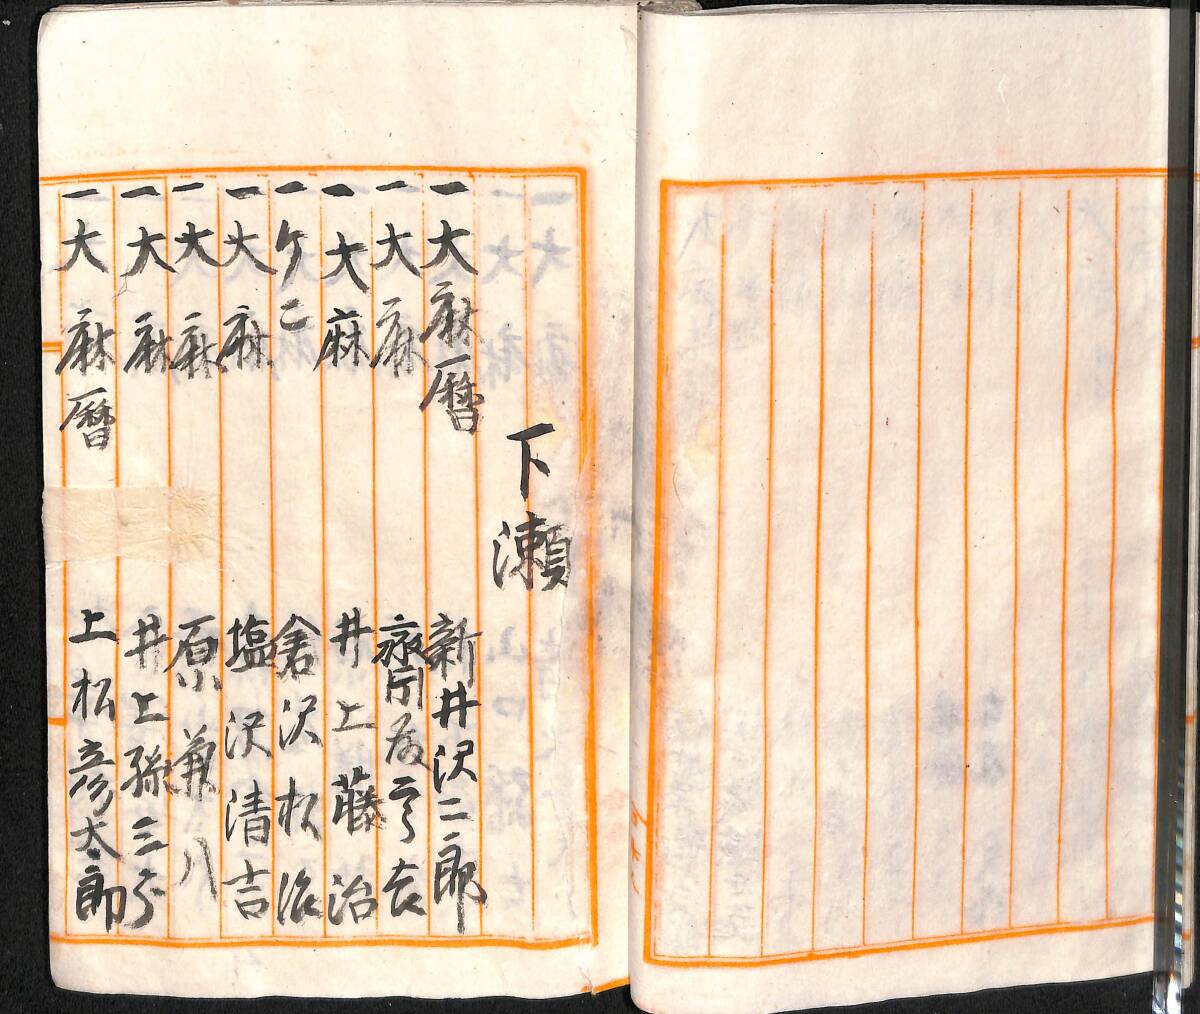 下瀬
一大麻暦 新井沢二郎
一大麻 齋

吉
一大麻 井上藤治
一ケ二 倉沢松治
一大麻 塩沢清吉
一大麻 原兼八
一大麻 井上孫三郎
一大麻暦 上松彦太郎